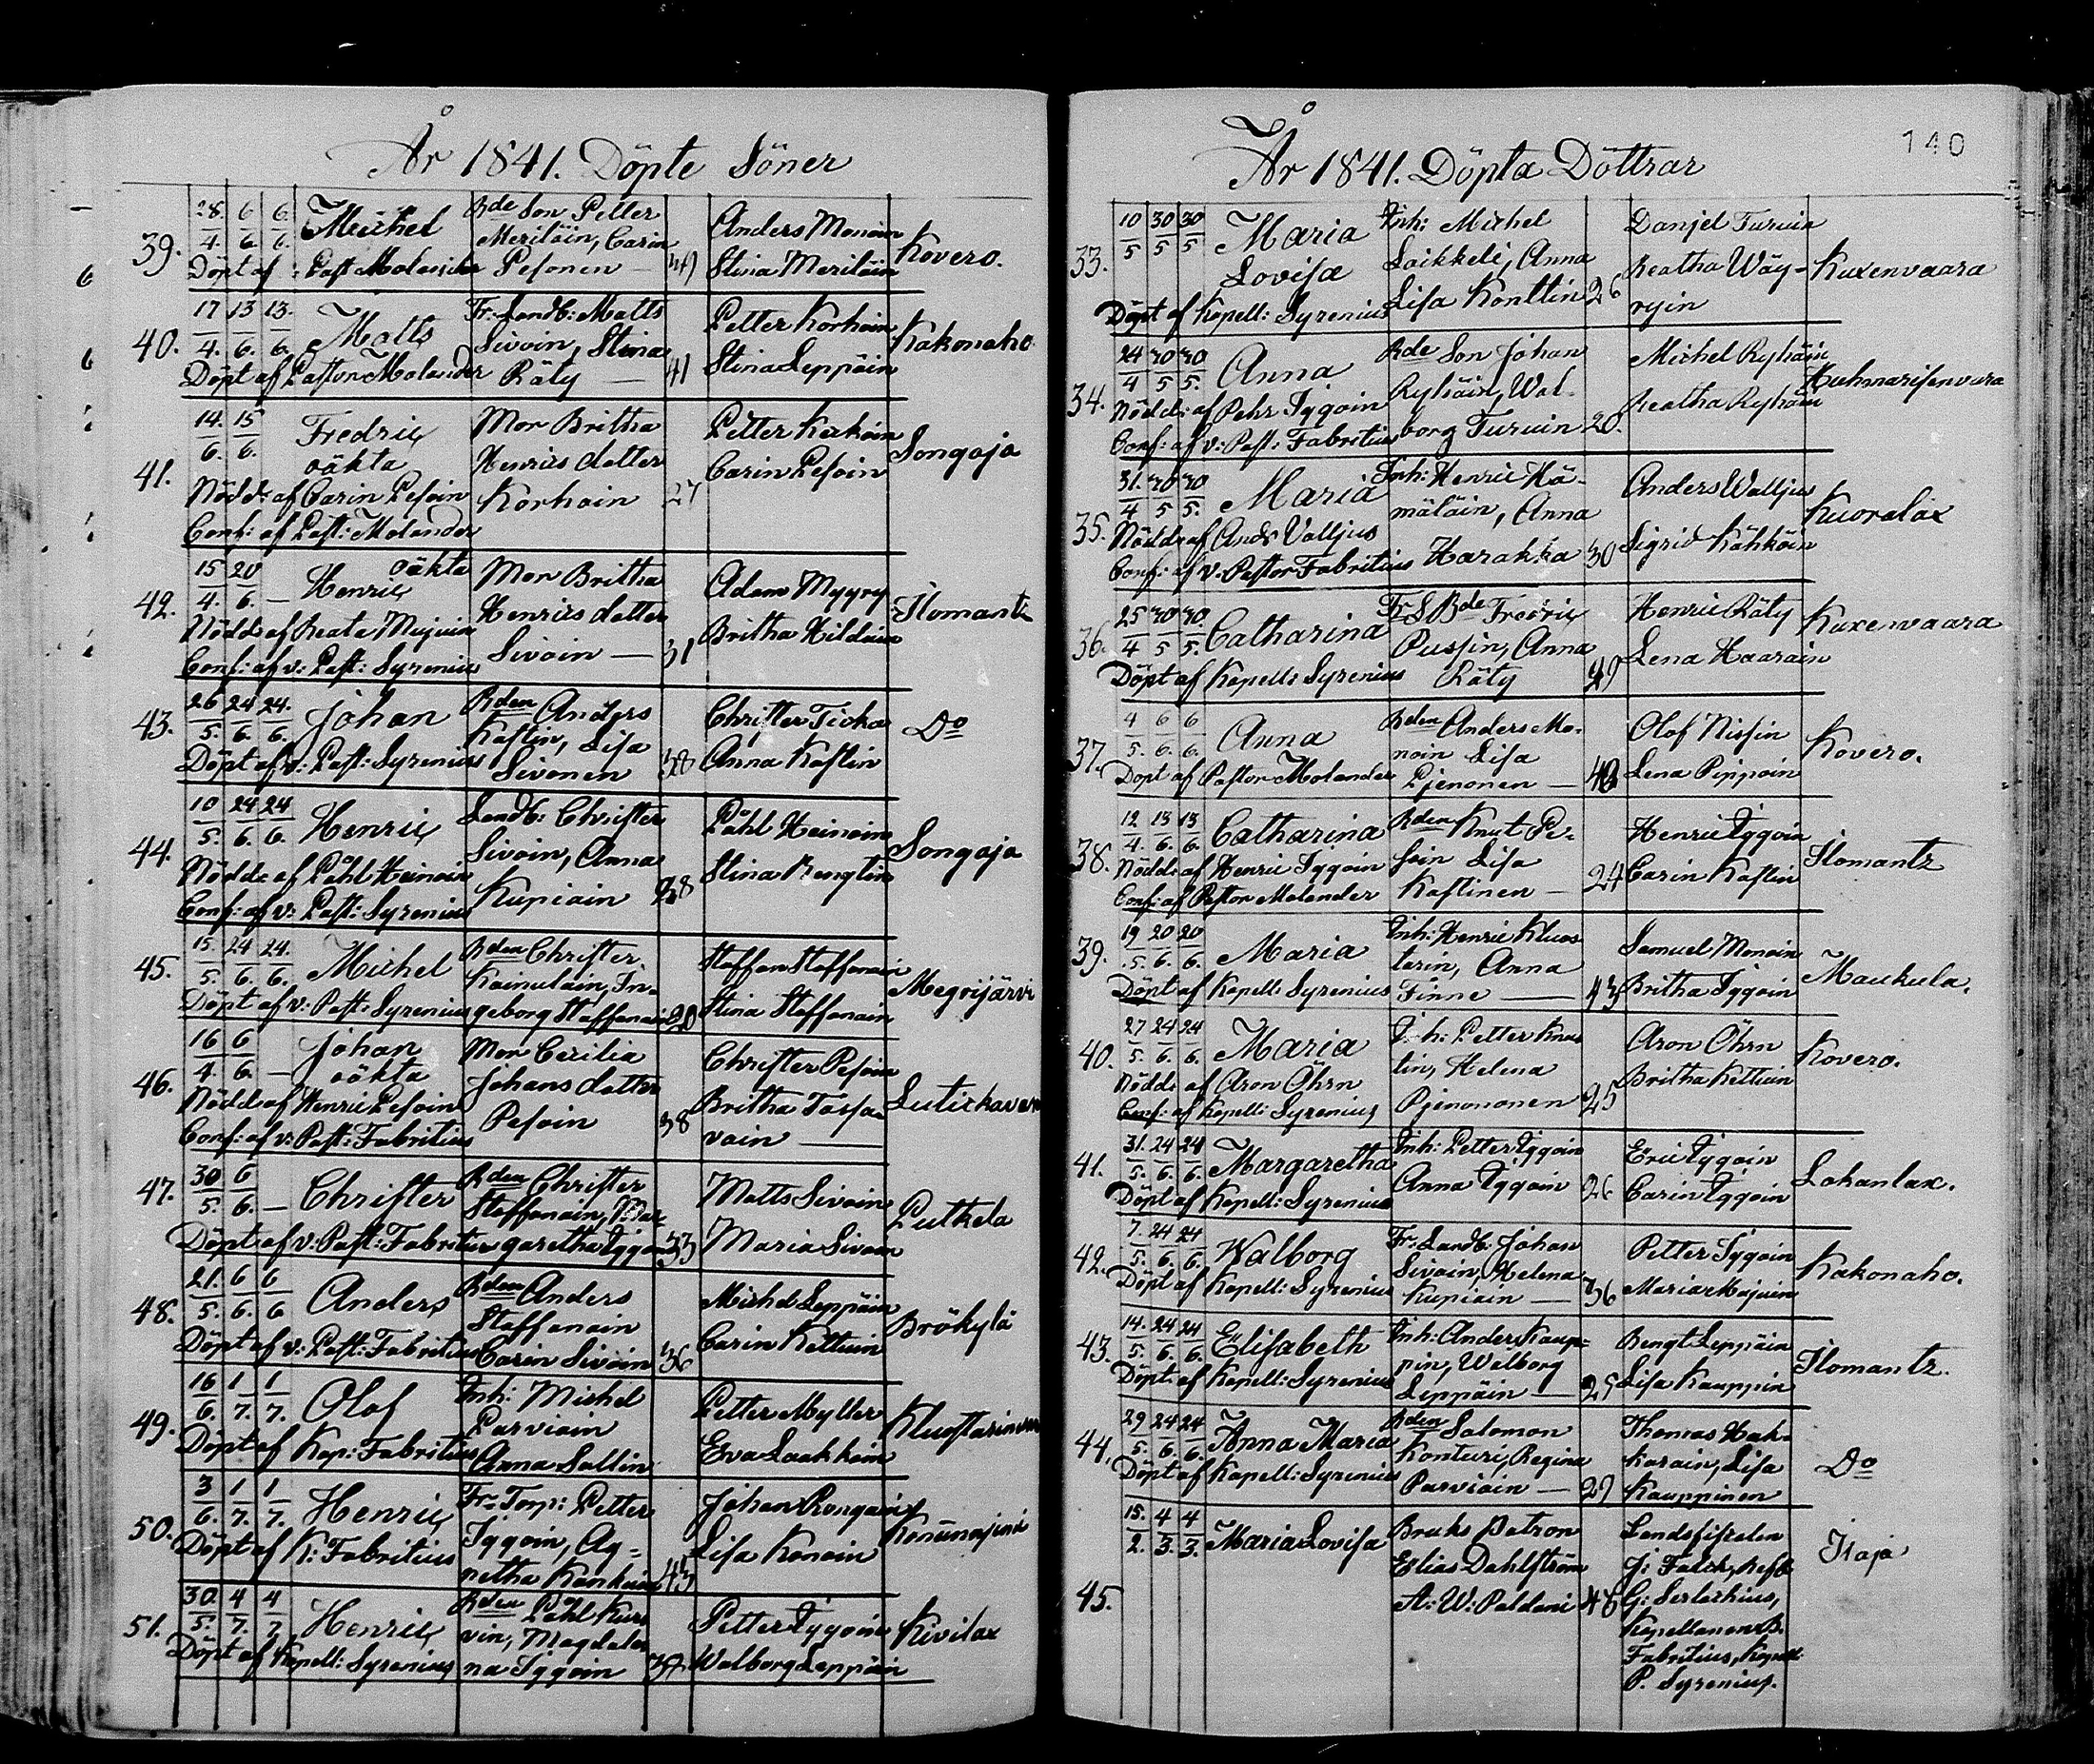 År 1841. Döpte Söner
39. 28/4. 6/6. 6/6. Michel
Döpt af Past Molander
Bde Son Petter
Meriläin, Carin
Pesonen —
Anders Monoin
Stina Meriläin
Kovero.
40. 17/4. 13/6. 13/6. Matts
Döpt af Pastor Molander
Fr: Landb: Matts
Sivoin, Stina
Räty — 41
Petter Korhoin
Stina Leppäin
Kakonaho
41. 14/6. 15/6. Fredric
oäkta
Nödd: af Carin Pesoin
Conf: af Past: Molander
Mor Britha
Henrics dotter
Korhoin 27
Petter
Carin Pesoin
Songaja
42. 15/4. 20/6. — Henric oäkta
Nödd: af Beata
Conf: af v: Past: Syrenius
Mor Britha
Henrics dotter
Sivoin — 31
Adam Myyry
Britha
Ilomantz
43. 26/5. 24/6. 24/6. Johan
Döpt af v: Past: Syrenius
Bden Anders
Kastin, Lisa
Sivonen 38
Christer Ticka
Anna Kastin
Do
44. 10/5. 24/6. 24/6. Henric
Nödd: af Påhl Heinoin
Conf: af v: Past: Syrenius
Landb: Christer
Sivoin, Anna
Kupiain
Påhl Heinoin
Stina
Songaja
45. 15/5. 24/6. 24/6. Michel
Döpt af v: Past: Syrenius
Bden Christer
Kainulain, In-
geborg Staffanain
Staffan Staffanain
Stina Staffanain
Megrijärvi
46. 16/4. 6/6. — Johan
oäkta
Nödd af Henric Pesoin
Conf: af v: Past: Fabritius
Mor Cecilia
Johans dotter
Pesoin 38
Christer Pesoin
Britha Tossa-
vain —
47. 30/5. 6/6. — Christer
Döpt af v: Past: Fabritius
Bden Christer
Staffanain, Mar-
garetha Iggoin 33
Matts Sivoin
Maria Sivoin
Putkela
48. 21/5. 6/6. 6/6 Anders
Döpt af v: Past: Fabritius
Bden Anders
Staffanain
Carin Sivoin 36
Michel Leppäin
Carin Kettuin
Brökylä
49. 16/6. 1/7. 1/7. Olof
Döpt af Kap: Fabritius
Inh: Michel
Parviain
Anna Sallin
Petter Myller
Eva Laakkoin
50. 3/6. 1/7. 1/7. Henric
Döpt af K: Fabritius
Fr: Torp: Petter
Iggoin, Ag-
netha
43
Johan Rongain
Lisa Konoin
51. 30/5. 4/7. 4/7 Henric
Döpt af Kapell: Syrenius
Bden Påhl Kur-
vin, Magdale-
na Iggoin
Petter Iggoin
Walborg Leppäin
Kivilax
År 1841. Döpta Döttrar
140
33. 10/5 30/5 30/5 Maria
Lovisa
Döpt af Kapell: Syrenius
Inh: Michel
Laikkeli, Anna
Lisa Konttin 26
Danjel Turuin
Beatha Väy-
ryin
Kuxenvaara
34. 24/4 30/5 30/5. Anna
Nödd: af Pehr Iggoin
Conf: af v: Past: Fabritius
Bde Son Johan
Ryhäin, Wal-
borg Turuin 20.
Michel Ryhäin
Beatha Ryhäin
Huhmarisenvara
35. 31./4 30/5 30/5. Maria
Nödd: af Ands Valljus
Conf: af v. Pastor Fabritius
Inh: Henric Hä-
mäläin, Anna
Harakka 30
Anders Walljus
Sigrid Kähköin
Kuoralax
36. 25/4 30/5 30/5. Catharina
Döpt af Kapell: Syrenius
Fr. S Bde Fredric
Pussin, Anna
Räty
Henric Räty
Lena Haarain
Kuxenvaara
37. 4/5. 6/6. 6/6. Anna
Döpt af Pastor Molander
Bden Anders Mo-
noin Lisa
Pjenonen —
Olof Nissin
Lena Pippoin
Kovero.
38. 12/4. 13/6. 13/6. Catharina
Nödd: af Henric Iggoin
Conf: af Pastor Molander
Bden Knut Pe-
soin Lisa
Kastinen — 24
Henric Iggoin
Carin Kastin
Ilomantz
39. 19/5. 20/6. 20/6. Maria
Döpt af Kapell: Syrenius
Inh: Henric Kluos-
tarin, Anna
Finne — 43
Samuel Monoin
Britha Iggoin
Maukula.
40. 27/5. 24/6. 24/6. Maria
Nödd: af Aron Öhrn
Conf: af Kapell: Syrenius
Inh: Petter
tin, Helena
Pjenononen 25
Aron Öhrn
Britha Kettuin
Kovero.
41. 31./5. 24/6. 24/6. Margaretha
Döpt af Kapell: Syrenius
Inh: Petter Iggoin
Anna Iggoin 26
Eric Iggoin
Carin Iggoin
Lohanlax.
42. 7./5. 24/6. 24/6. Walborg
Döpt af Kapell: Syrenius
Fr: Landb: Johan
Sivoin, Helena
Kupiain — 36
Petter Iggoin
Maria
Kakonaho.
43. 14./5. 24/6. 24/6. Elisabeth
Döpt af Kapell: Syrenius
Inh: Anders Kaup-
pin, Walborg
Leppäin — 25
Bengt Leppäin
Lisa Kauppin
Ilomantz.
44. 29/5. 24/6. 24/6. Anna Maria
Döpt af Kapell: Syrenius
Bden Salomon
Konturi, Regina
Parviain —
Thomas Hak-
karain, Lisa
Kauppinen
Do
45. 15./2. 4/3. 4/3. Maria Lovisa
Bruks Patron
Elias Dahlström
A: W: Paldani
Landsfiskalen
J: Falck,
G: Serlachius,
Kapellanen B.
Fabritius, Kapell:
P. Syrenius.
Ilaja